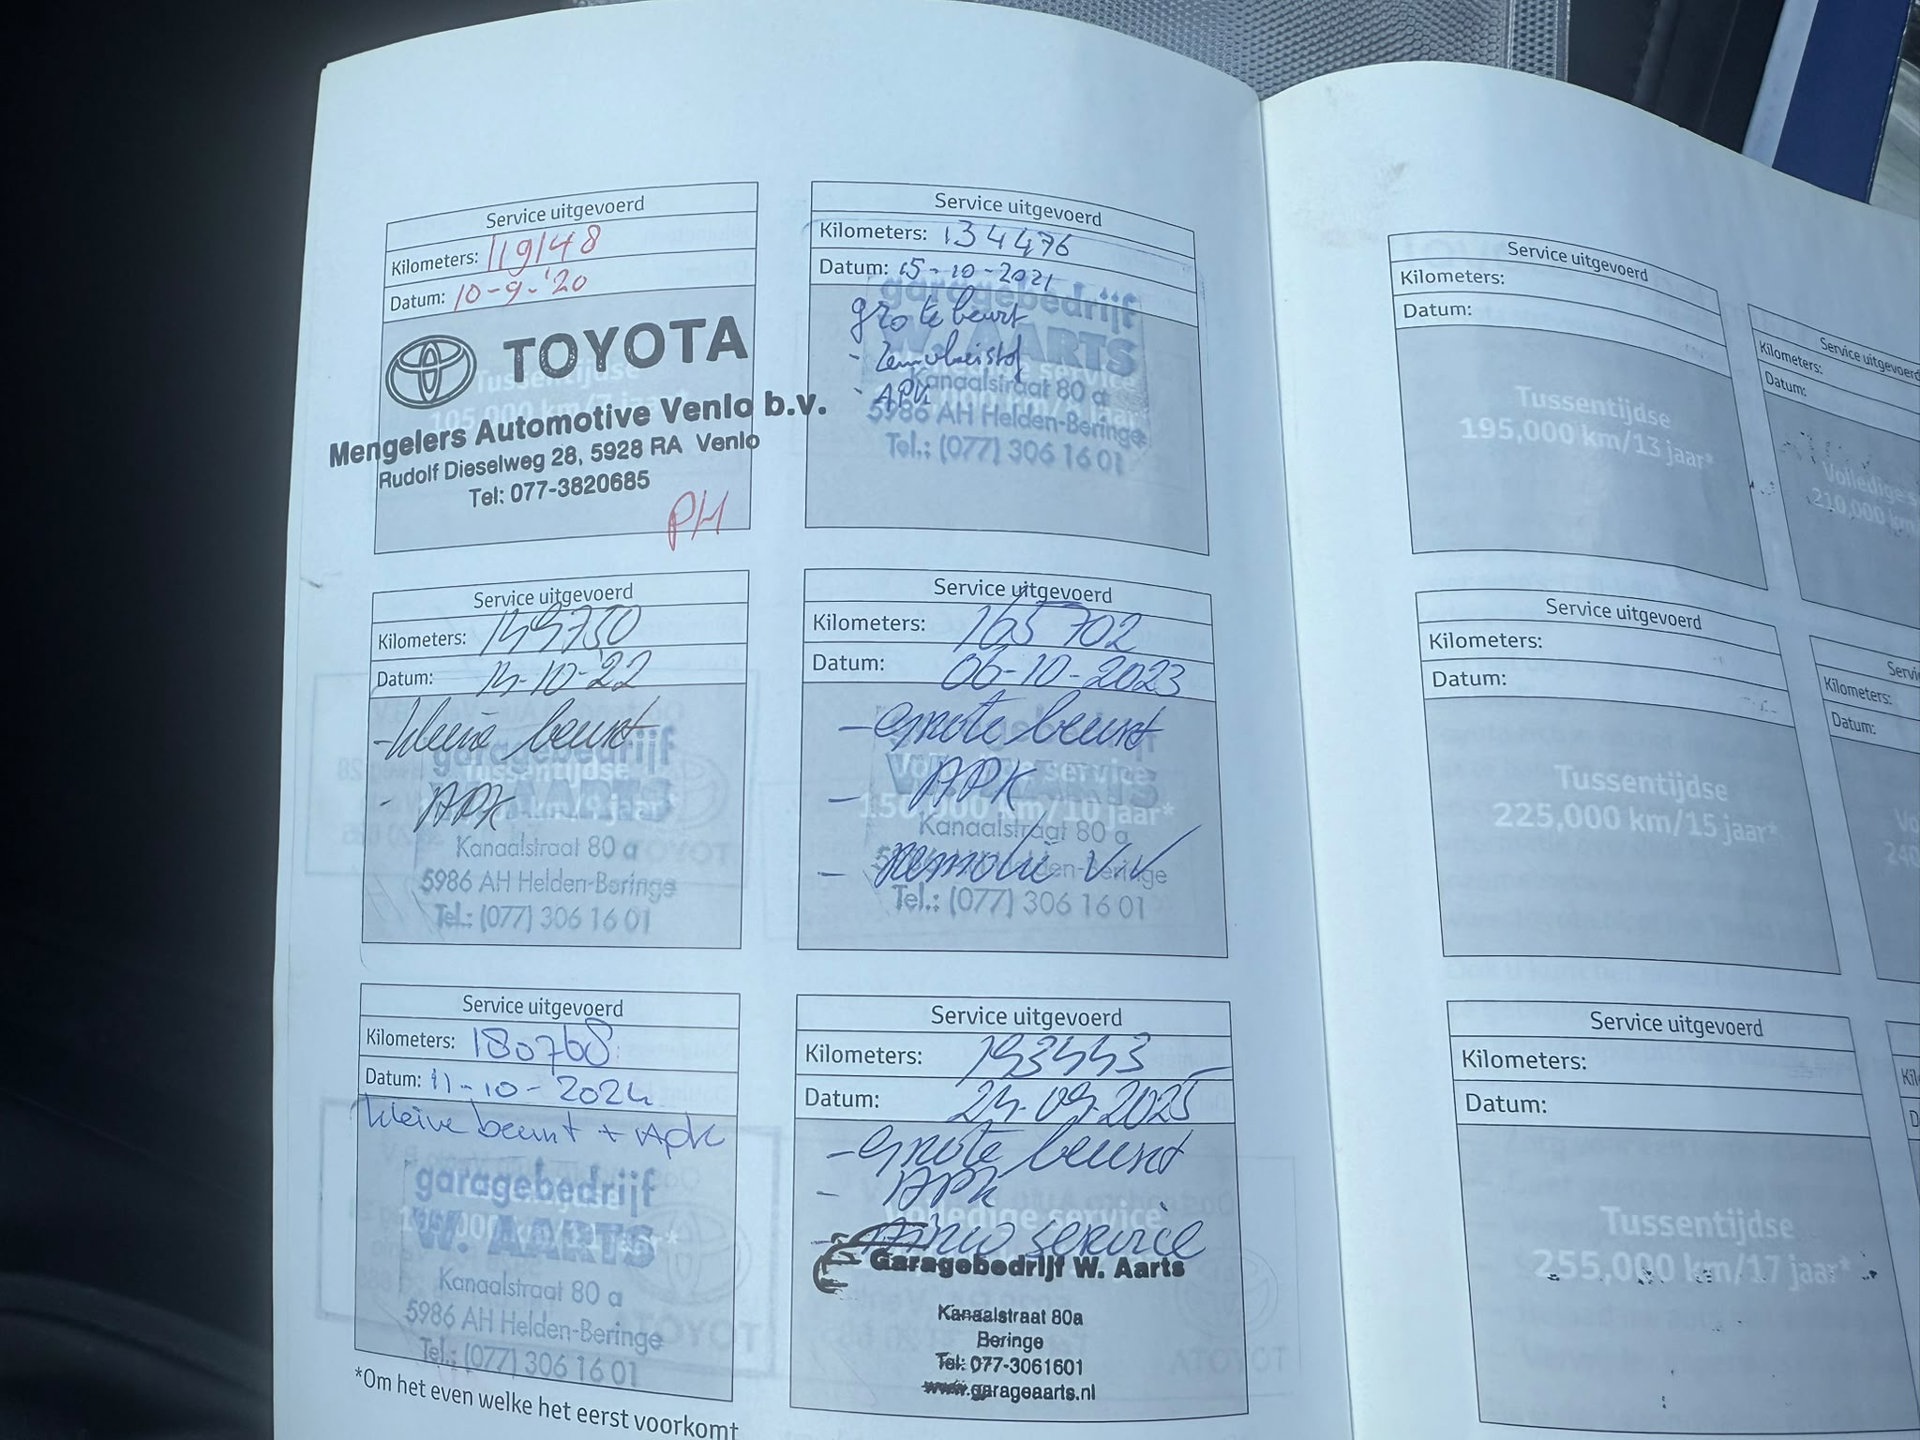 Service uitgevoerd
Kilometers: 119148
Datum: 10-9-'20
TOYOTA
Mengelers Automotive Venlo b.v.
Rudolf Dieselweg 28, 5928 RA Venlo
Tel: 077-3820685
PH
Service uitgevoerd
Kilometers: 134476
Datum: 15-10-2021
garagebedrijf
grote beurt
W. AARTS
- remvloeistof
Kanaalstraat 80 a
- APK
5986 AH Helden-Beringe
Tel.: (077) 306 16 01
Service uitgevoerd
Kilometers: 149750
Datum: 14-10-'22
- kleine beurt
garagebedrijf
Tussentijdse
- APK
W. AARTS
Kanaalstraat 80 a
5986 AH Helden-Beringe
Tel.: (077) 306 16 01
Service uitgevoerd
Kilometers: 165702
Datum: 06-10-2023
- Grote beurt
Volledige service
- APK
150,000 km/10 jaar*
Kanaalstraat 80 a
- remolie V.V
Tel.: (077) 306 16 01
Service uitgevoerd
Kilometers: 180768
Datum: 11-10-2024
kleine beurt + Apk
garagebedrijf
W. AARTS
Kanaalstraat 80 a
5986 AH Helden-Beringe
Tel.: (077) 306 16 01
Service uitgevoerd
Kilometers: 193443
Datum: 24-09-2025
- Grote beurt
- APK
Volledige service
- Airco service
Garagebedrijf W. Aarts
Kanaalstraat 80a
Beringe
Tel: 077-3061601
www.garageaarts.nl
*Om het even welke het eerst voorkomt
Service uitgevoerd
Kilometers:
Datum:
Tussentijdse
195,000 km/13 jaar*
Service uitgevoerd
Kilometers:
Datum:
Volledige
210,000 km
Service uitgevoerd
Kilometers:
Datum:
Tussentijdse
225,000 km/15 jaar*
Kilometers:
Datum:
Service uitgevoerd
Kilometers:
Datum:
Tussentijdse
255,000 km/17 jaar*